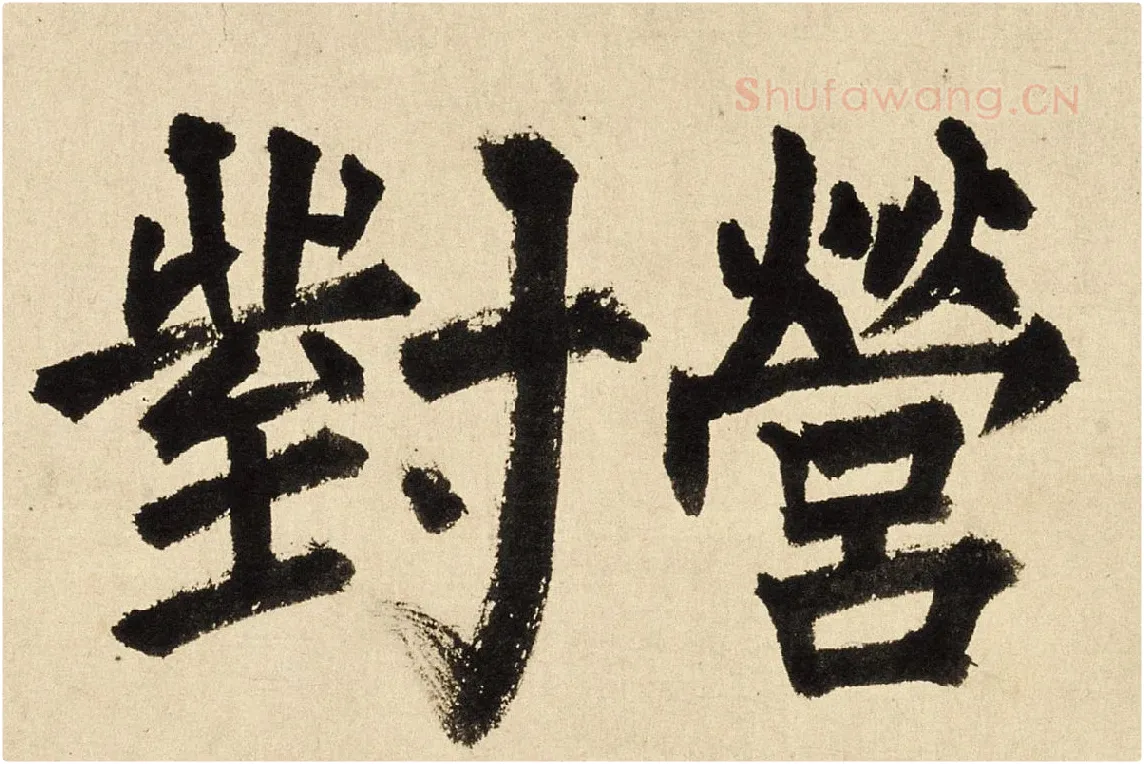 Shufawang.CN
對營